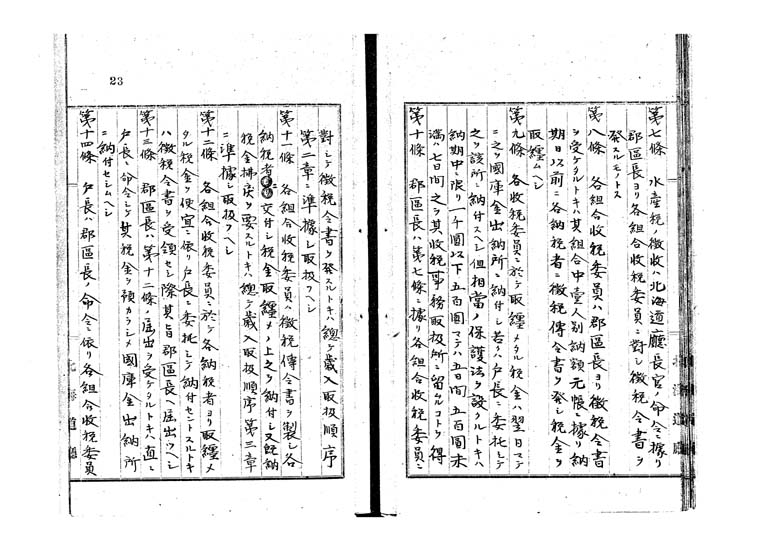 第七條 水産税ノ徴收ハ北海道廳長官ノ命令ニ據リ
郡區長ヨリ各組合收税委員ニ對シ徴税令書ヲ
發スルモノトス
第八條 各組合收税委員ハ郡區長ヨリ徴税令書
ヲ受ケタルトキハ其組合中壹人別納額元帳ニ據リ納
期日以前ニ各納税者ニ徴税傳令書ヲ発シ税金ヲ
取纒ムヘシ
第九條 各收税委員ニ於テ取纒メタル税金ハ翌日マテ
ニ之ヲ國庫金出納所ニ納付シ若クハ戸長ニ委托シテ
之ヲ該所ニ納付スヘシ但相當ノ保護法ヲ設クルトキハ
納期中ニ限リ一千圓以下五百圓マテハ五日間五百圓未
満ハ七日間之ヲ其收税事務取扱所ニ留ムルコトヲ得
第十條 郡區長ハ第七條ニ據リ各組合收税委員ニ
23
對シテ徴税令書ヲ發スルトキハ總テ歳入取扱順序
第二章ニ準據シ取扱フヘシ
第十一條 各組合收税委員ハ徴税傳令書ヲ製シ各
納税者ニ交付シ税金取纒メノ上之ヲ納付シ又既納
税金拂戻ヲ要スルトキハ總テ歳入取扱順序第三章
ニ準據シ取扱フヘシ
第十二條 各組合收税委員ニ於テ各納税者ヨリ取纒メ
タル税金ヲ便宜ニ依リ戸長ニ委托シテ納付セントスルトキ
ハ徴税令書ヲ受領セシ際其旨郡區長ヘ届出ツヘシ
第十三條 郡區長ハ第十二條ノ届出ヲ受ケタルトキハ直ニ
戸長ニ命令シテ其税金ヲ預カラシメ國庫金出納所
ニ納付セシムヘシ
第十四條 戸長ハ郡區長ノ命令ニ依リ各組合收税委員
北海道廳